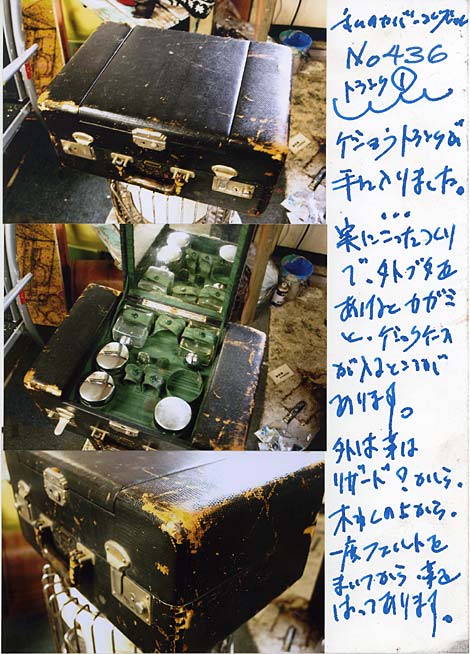 私のカバンコレクション
No436
トランク①
ケショウトランクが
手に入りました。
実にこったつくり
で、外ブタを
あけるとカガミ
と、ケショウケース
が入るところが
あります。
外は革は
リザード?かしら。
木わくの上から。
一度フェルトを
まいてから 革を
はってあります。